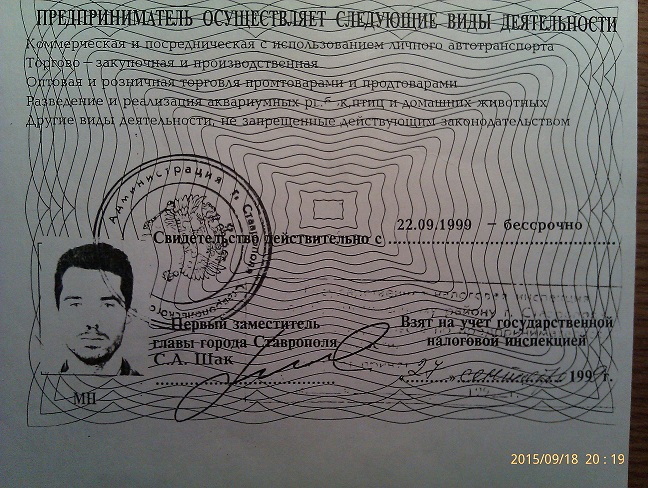 ПРЕДПРИНИМАТЕЛЬ ОСУЩЕСТВЛЯЕТ СЛЕДУЮЩИЕ ВИДЫ ДЕЯТЕЛЬНОСТИ
Коммерческая и посредническая с использованием личного автотранспорта
Торгово – закупочная и производственная
Оптовая и розничная торговля промтоварами и продтоварами
Разведение и реализация аквариумных птиц и домашних животных
Другие виды деятельности, не запрещенные действующим законодательством
Администрация г. Ставрополя
Ставропольского
22.09.1999 – бессрочно
Свидетельство действительно с
налоговая инспекция
району
Первый заместитель
главы города Ставрополя
С.А. Шак
Взят на учет государственной
налоговой инспекцией
«27» сентября 1999г.
МП
2015/09/18 20:19